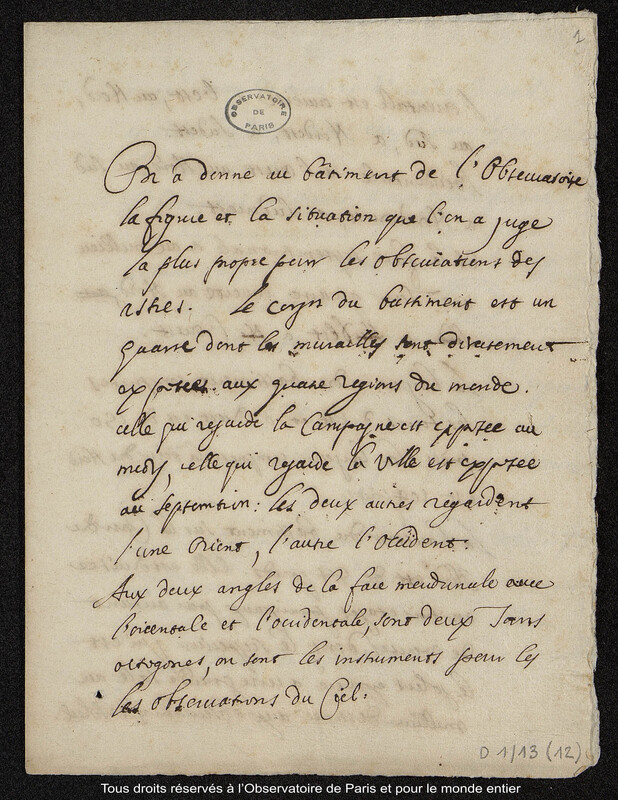 1
OBSERVATOIRE
DE
PARIS
On a donne au bâtiment de l'Observatoire
la figure et la situation que l'on a juge
la plus propre pour les observations des
astres. Le corps du bastiment est un
quarre dont les murailles sont directement
exposees aux quatre regions du monde.
celle qui regarde la Campagne est exposee au
midy, celle qui regarde la Ville est exposee
au septemtrion: les deux autres regardent
l'une Orient, l'autre l'Occident.
Aux deux angles de la face meridionale avec
l'orientale et l'occidentale, sont deux Tours
octogones, ou sont les instruments pour les
les observations du Ciel.
D 1/13 (12)
Tous droits réservés à l'Observatoire de Paris et pour le monde entier